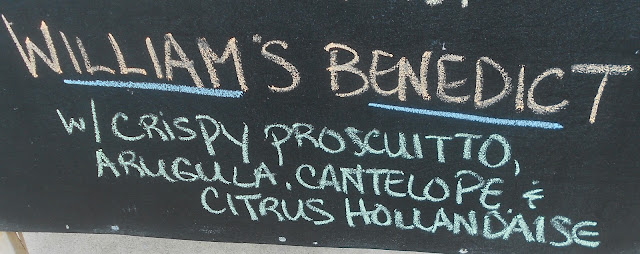 WILLIAM'S BENEDICT
W/ CRISPY PROSCUITTO,
ARUGULA, CANTELOPE &
CITRUS HOLLANDAISE